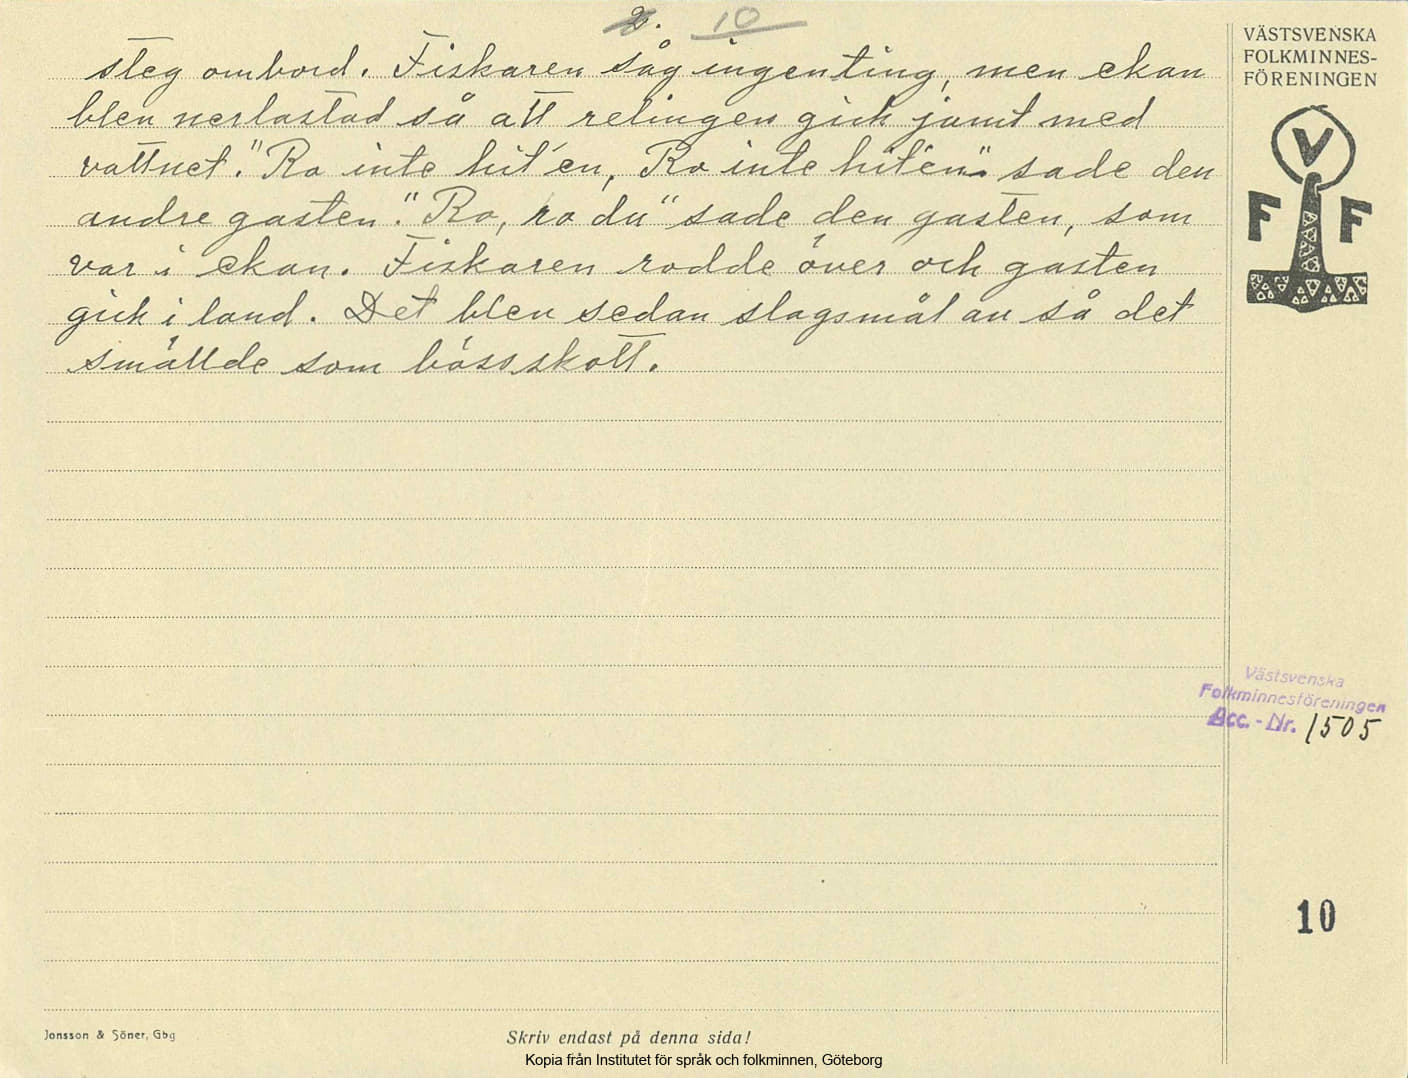 2. 10
steg ombord. Fiskaren såg ingenting, men ekan
blev nerlastad så att relingen gick jämt med
vattnet. "Ro inte hit'en, Ro inte hit'en" sade den
andre gasten. "Ro, ro du" sade den gasten, som
var i ekan. Fiskaren rodde över och gasten
gick i land. Det blev sedan slagsmål av så det
smällde som bösskott.
VÄSTSVENSKA
FOLKMINNES-
FÖRENINGEN
V
F F
Västsvenska
Folkminnesföreningen
Acc. - Nr. 1505
10
Jonsson & Söner, Gbg
Skriv endast på denna sida!
Kopia från Institutet för språk och folkminnen, Göteborg